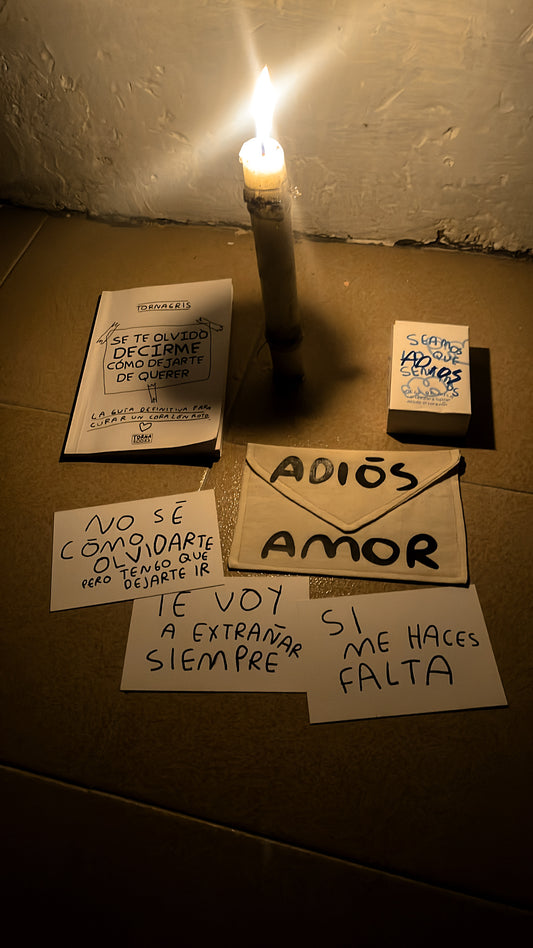 TORNAGRIS
SE TE OLVIDO
DECIRME
CÓMO DEJARTE
DE QUERER
LA GUÍA DEFINITIVA PARA
CURAR UN CORAZÓN ROTO
SEAMOS
QUE
SEAMOS
ADIÓS
AMOR
NO SĒ
CŌMO
OLVIDARTE
PERO TENGO QUE
DEJARTE IR
TE VOY
A EXTRAÑAR
SIEMPRE
SI
ME HACES
FALTA